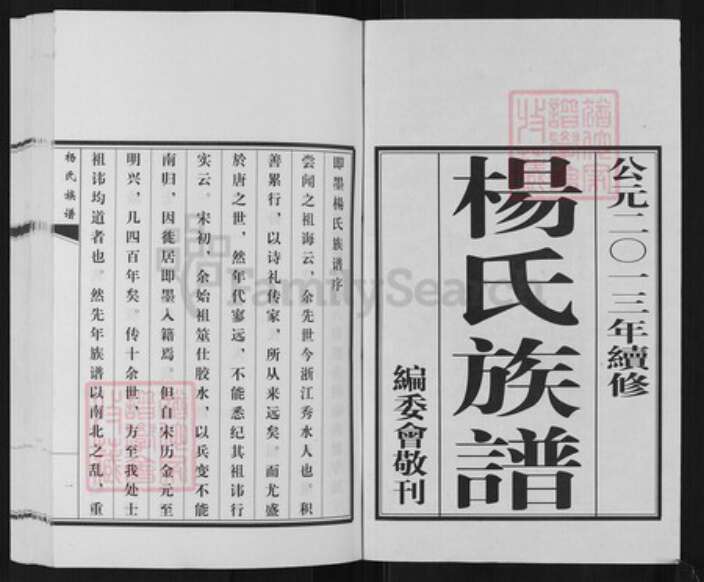 公元二〇一三年續修
楊氏族譜
編委會敬刊
即墨楊氏族谱序
尝闻之祖海云、余先世今浙江秀水人也。积
善累行、以诗礼传家、所从来远矣。而尤盛
於唐之世、然年代寥远、不能悉纪其祖讳行
实云。宋初、余始祖筮仕胶水、以兵变不能
南归、因徙居即墨入籍焉。但自宋历金元至
明兴、几四百年矣。传十余世、方至我处士
祖讳均道者也。然先年族谱以南北之乱、重
杨氏族谱
一
FamilySearch